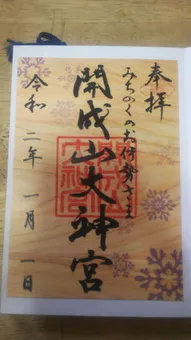 奉拝
みちのくのお伊勢さま
開成山大神宮
令和二年 一月 一日